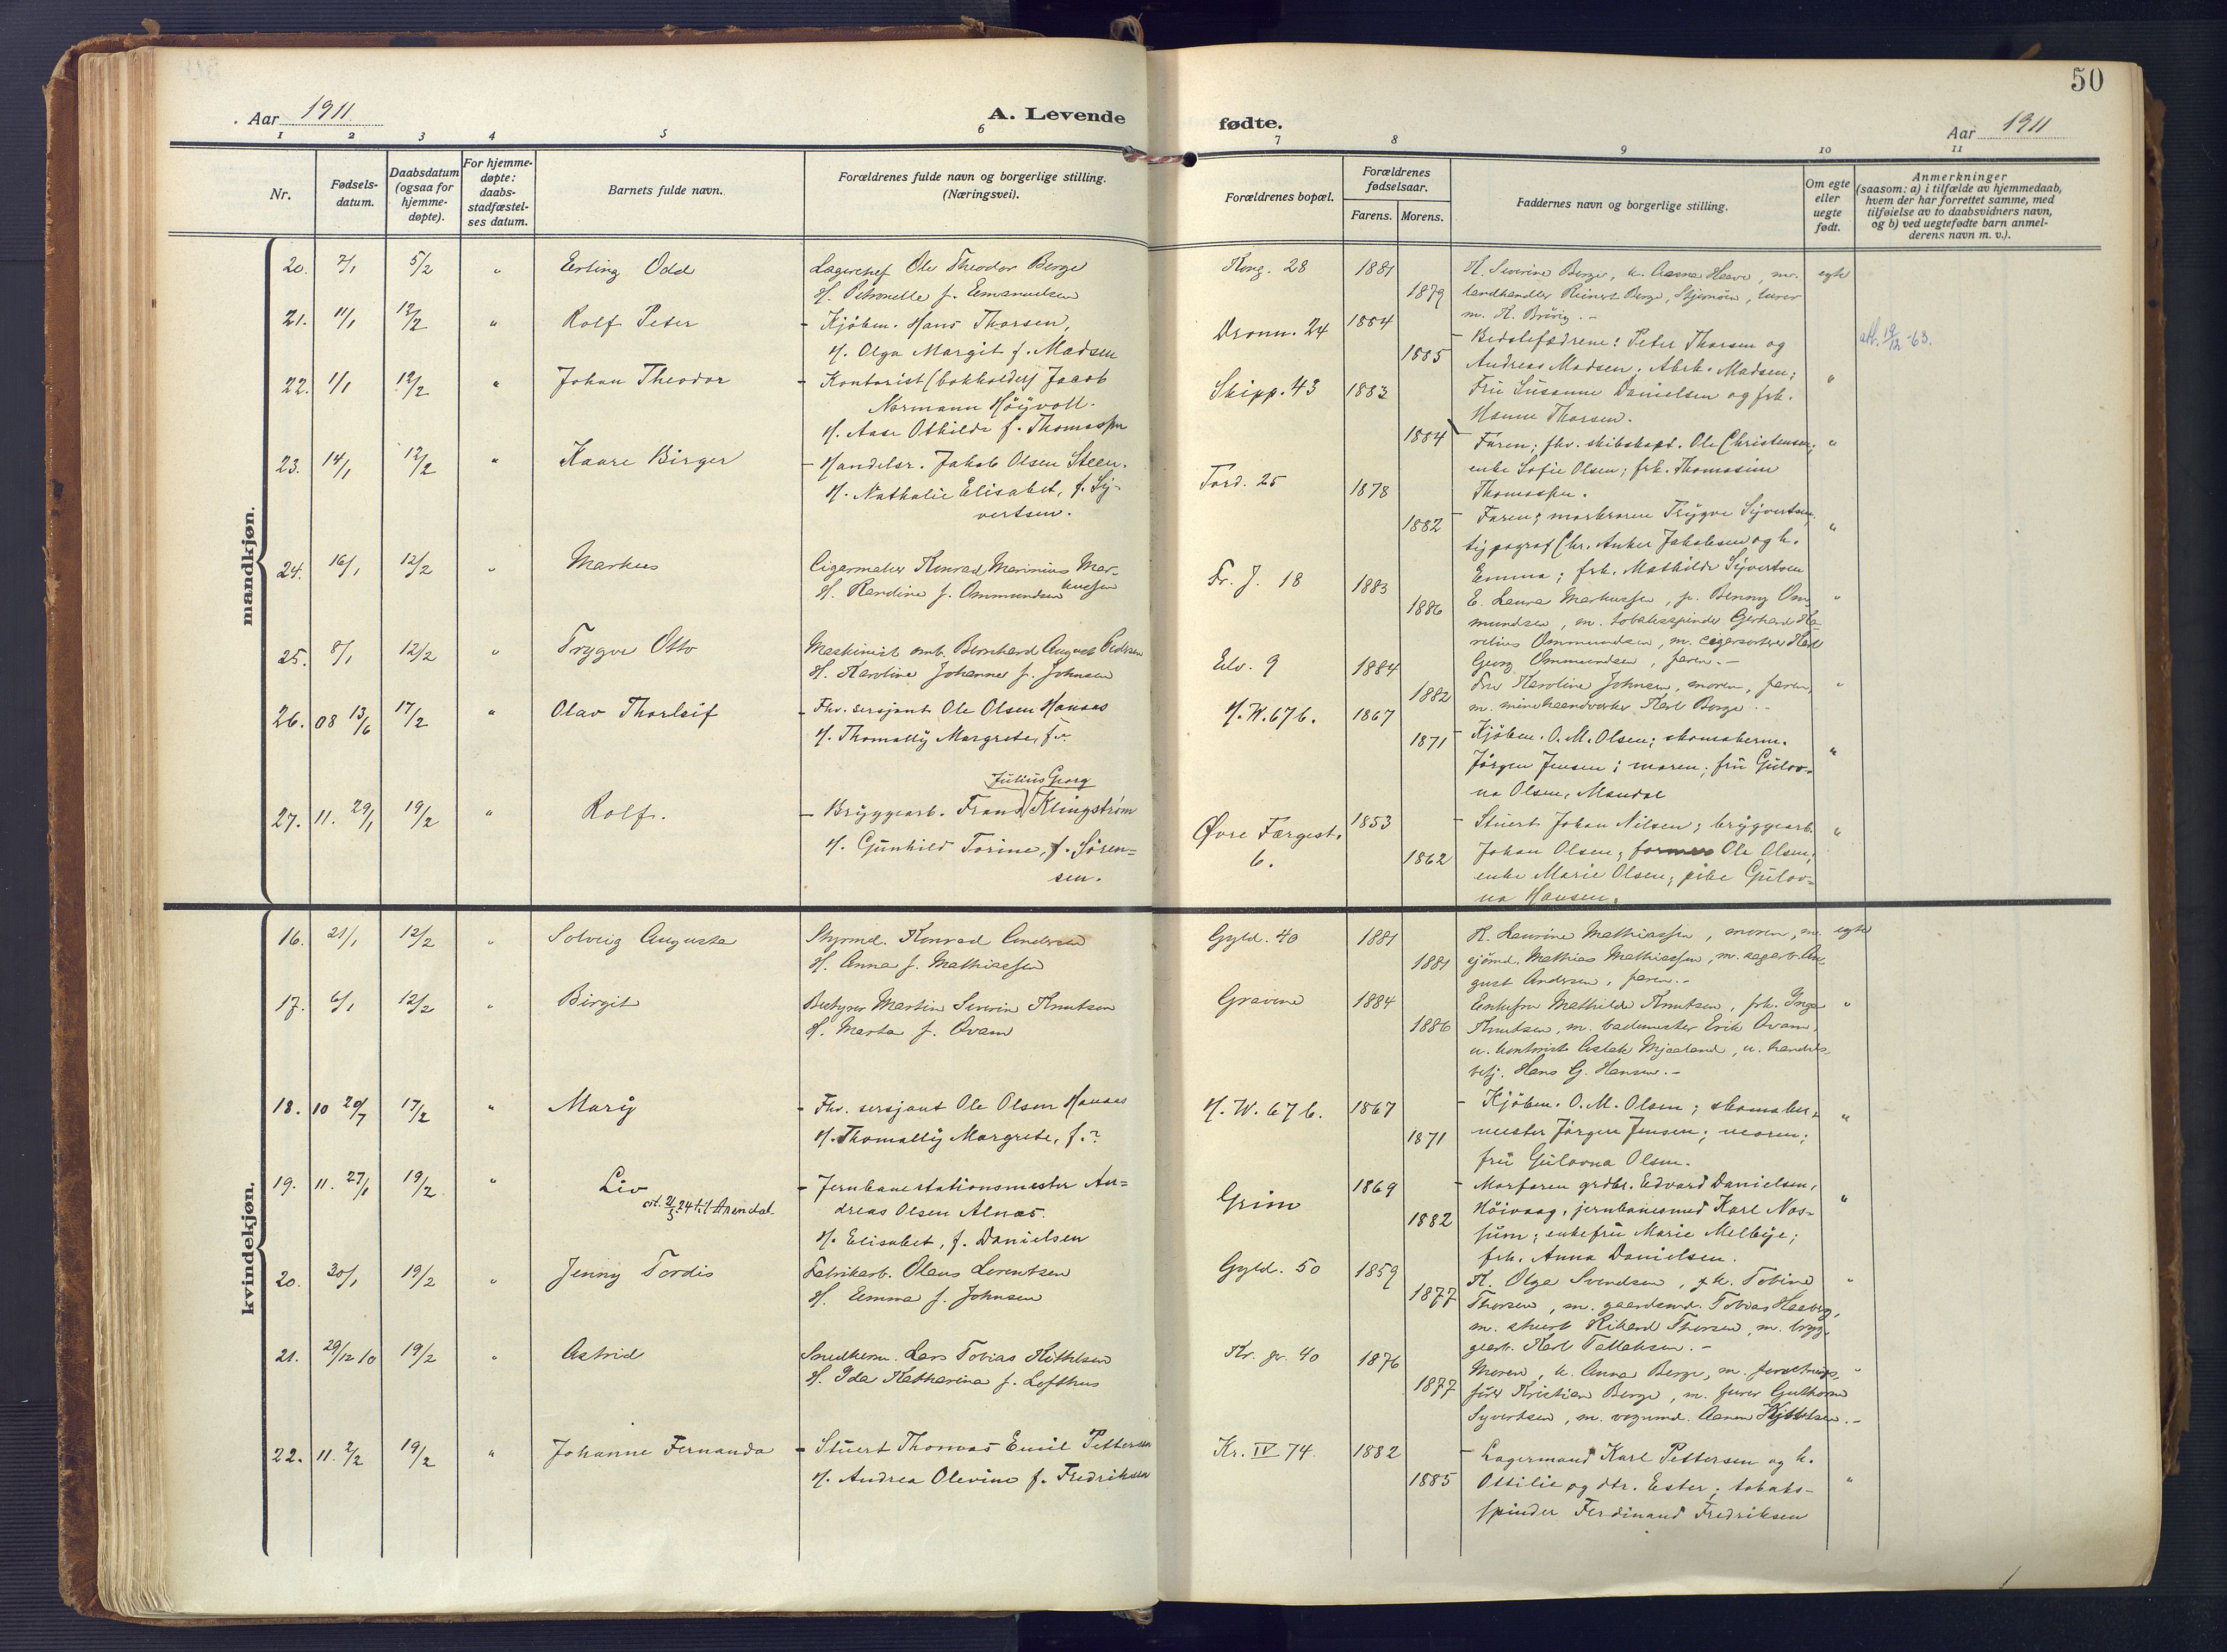 50
Aar 1911
A. Levende
fødte.
Aar 1911
1 2 3 4 5 6 7 8 9 10 11
Nr.
Fødsels-
datum.
Daabsdatum
(ogsaa for
hjemme-
døpte).
For hjemme-
døpte:
daabs-
stadfæstel-
ses datum.
Barnets fulde navn.
Forældrenes fulde navn og borgerlige stilling.
(Næringsvei).
Forældrenes bopæl.
Forældrenes
fødselsaar.
Farens. Morens.
Faddernes navn og borgerlige stilling.
Om egte
eller
uegte
født.
Anmerkninger
(saasom: a) i tilfælde av hjemmedaab,
hvem der har forrettet samme, med
tilføielse av to daabsvidners navn,
og b) ved uegtefødte barn anmel-
derens navn m. v.).
mandkjøn.
20. 7/1 5/2 " Erling Odd
Lagerchef Ole Theodor Berge
H. Petronelle f. Emanuelsen
Kong. 28 1881 1879
K. Severine Berge, u. Aanna Haave, m.
landhandler Reinert Berge, Stjernöen, lærer
m. K. Brövig. -
egte
21. 11/1 12/2 " Rolf Peter
- Kjöbm. Hans Thorsen,
H. Olga Margit f. Madsen
Dronn. 24 1884 1885
- Bedstefædrene: Peter Thorsen og
Andreas Madsen. Abrh. Madsen;
Frü Süsanne Danielsen og frk.
Hanne Thorsen.
"
att. 19/12-63.
22. 1/1 12/2 " Johan Theodor
- Kontorist (bokholder) Jacob
Normann Höÿvoll.
H. Aase Othilde f. Thomassen
Skipp. 43 1883 1884
- Faren; fhv. skibskapt. Ole Christensen;
enke Sofie Olsen; frk. Thomasine
Thomassen.
"
23. 14/1 12/2 " Kaare Birger
- Handelsr. Jakob Olsen Steen.
H. Nathalie Elisabet, f. Sÿ-
vertsen.
Tord. 25 1878 1882
- Faren; maskraren Trÿgve Sÿvertsen,
tÿpograf Chr. Anker Jakobsen og h.
Emma; frk. Mathilde Sÿvertsen
"
24. 16/1 12/2 " Markus
Cigarmaker Konrad Marinius Mar-
kussen
H. Randine f. Ommundsen
Fr. J. 18 1883 1886
E. Laura Markussen, p. Benny Om-
mundsen, m. tobaksspinder Gerhard Ka-
relius Ommundsen, m. cigarsorterer Karl
Georg Ommundsen, faren. -
"
25. 8/1 12/2 " Trygve Otto
Maskinist omb. Bernhard August Pedersen
H. Karoline Johanne f. Johnsen
Elv. 9 1884 1882
Fru Karoline Johnsen, moren, faren,
m. minehaandverker Karl Berge. -
"
26. 08 13/6 17/2 " Olav Thorleif
- Fhv. sersjant Ole Olsen Hanaas
H. Thomallÿ Margrete, f. ?
H. W. 67 b. 1867 1871
- Kjöbm. O. M. Olsen; skomakerm.
Jörgen Jensen; moren; frü Gülov-
na Olsen, Mandal
"
27. 11. 29/1 19/2 " Rolf.
Julius Georg
- Brÿggearb. Frans Klingström
H. Günhild Torine, f. Sören-
sen.
Øvre Færgest.
6.
1853 1862
- Stüert Johan Nilsen; brÿggearb.
Johan Olsen; Ole Olsen;
enke Marie Olsen; pike Gülov-
na Hansen.
"
kvindekjøn.
16. 21/1 12/2 " Solveig Augusta
Styrmd. Konrad Andersen
H. Anna f. Mathiassen
Gyld. 40 1881 1881
K. Laurine Mathiassen, moren, m.
sjömd. Mathias Mathiassen, m. sagarb. Au-
gust Andersen, faren. -
egte
17. 6/1 12/2 " Birgit
Bestyrer Martin Severin Knutsen
H. Marta f. Ovam
Gravene 1884 1886
Enkefru Mathilde Knutsen, frk. Inga
Knutsen, m. bademester Erik Ovam,
u. kontorist Aslak Mjaaland, u. handels-
betj. Hans G. Hansen. -
"
18. 10 20/7 17/2 " Marÿ
- Fhv. sersjant Ole Olsen Hanaas
H. Thomallÿ Margrete, f. ?
H. W. 67 b. 1867 1871
- Kjöbm. O. M. Olsen; skomaker-
mester Jörgen Jensen; moren;
frü Gülovna Olsen.
"
19. 11. 27/1 19/2 " Liv
att. 21/5 24 til Arendal.
- Jernbanestationsmester An-
dreas Olsen Alnæs.
H. Elisabet, f. Danielsen
Grim 1869 1882
- Morfaren grdbr. Edvard Danielsen,
Höivaag, jernbanemand Karl Nos-
süm; enkefrü Marie Melbÿe;
frk. Anna Danielsen.
"
20. 30/1 19/2 " Jenny Tordis
Fabrikarb. Olaus Lorentsen
H. Emma f. Johnsen
Gyld. 50 1859 1877
K. Olga Svendsen, p. k. Tobine
Thorsen, m. gaardmd. Tobias Haaberg,
m. stuert Rikard Thorsen, m. bryg-
gearb. Karl Tallaksen. -
"
21. 29/12 10 19/2 " Astrid
Snedkerm. Lars Tobias Kittelsen
H. Ida Katharina f. Lofthus
Kr. gr. 40 1876 1877
Moren, k. Anna Berge, m. forretnings-
förer Kristian Berge, m. furer Guthorm
Syvertsen, m. vognmd. Aanen Kjittelsen. -
"
22. 11. 2/2 19/2 " Johanne Fernanda
- Stüert Thomas Emil Pettersen
H. Andrea Olevine f. Fredriksen
Kr. IV 74. 1882 1885
- Lagermand Karl Pettersen og h.
Ottilie og dtr. Ester; tobaks-
spinder Ferdinand Fredriksen
"